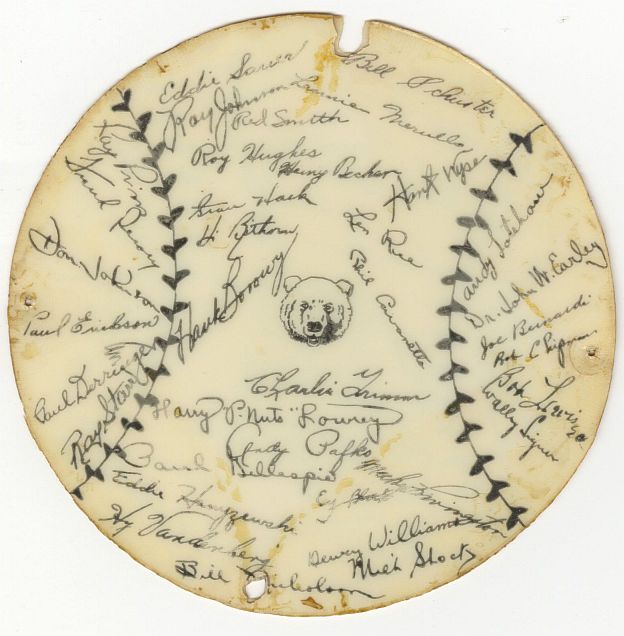 Eddie Sauer
Bill Schuster
Ray Johnson
Lennie Merullo
Red Smith
Ray Prim
Roy Hughes
Heinz Becker
Hank Wyse
Paul Derringer
Stan Hack
Len Rice
Andy Lotshaw
Hi Bithorn
Don Johnson
Hank Borowy
Dr. John W. Earley
Paul Erickson
Joe Bernardi
Bob Lewis
Charlie Grimm
Ray Starr
Harry P. "Nuts" Lowrey
Wally Signer
Andy Pafko
Paul Gillespie
Eddie Hanyzewski
Cy Block
Hy Vandenberg
Dewey Williams
Milt Stock
Bill Nicholson